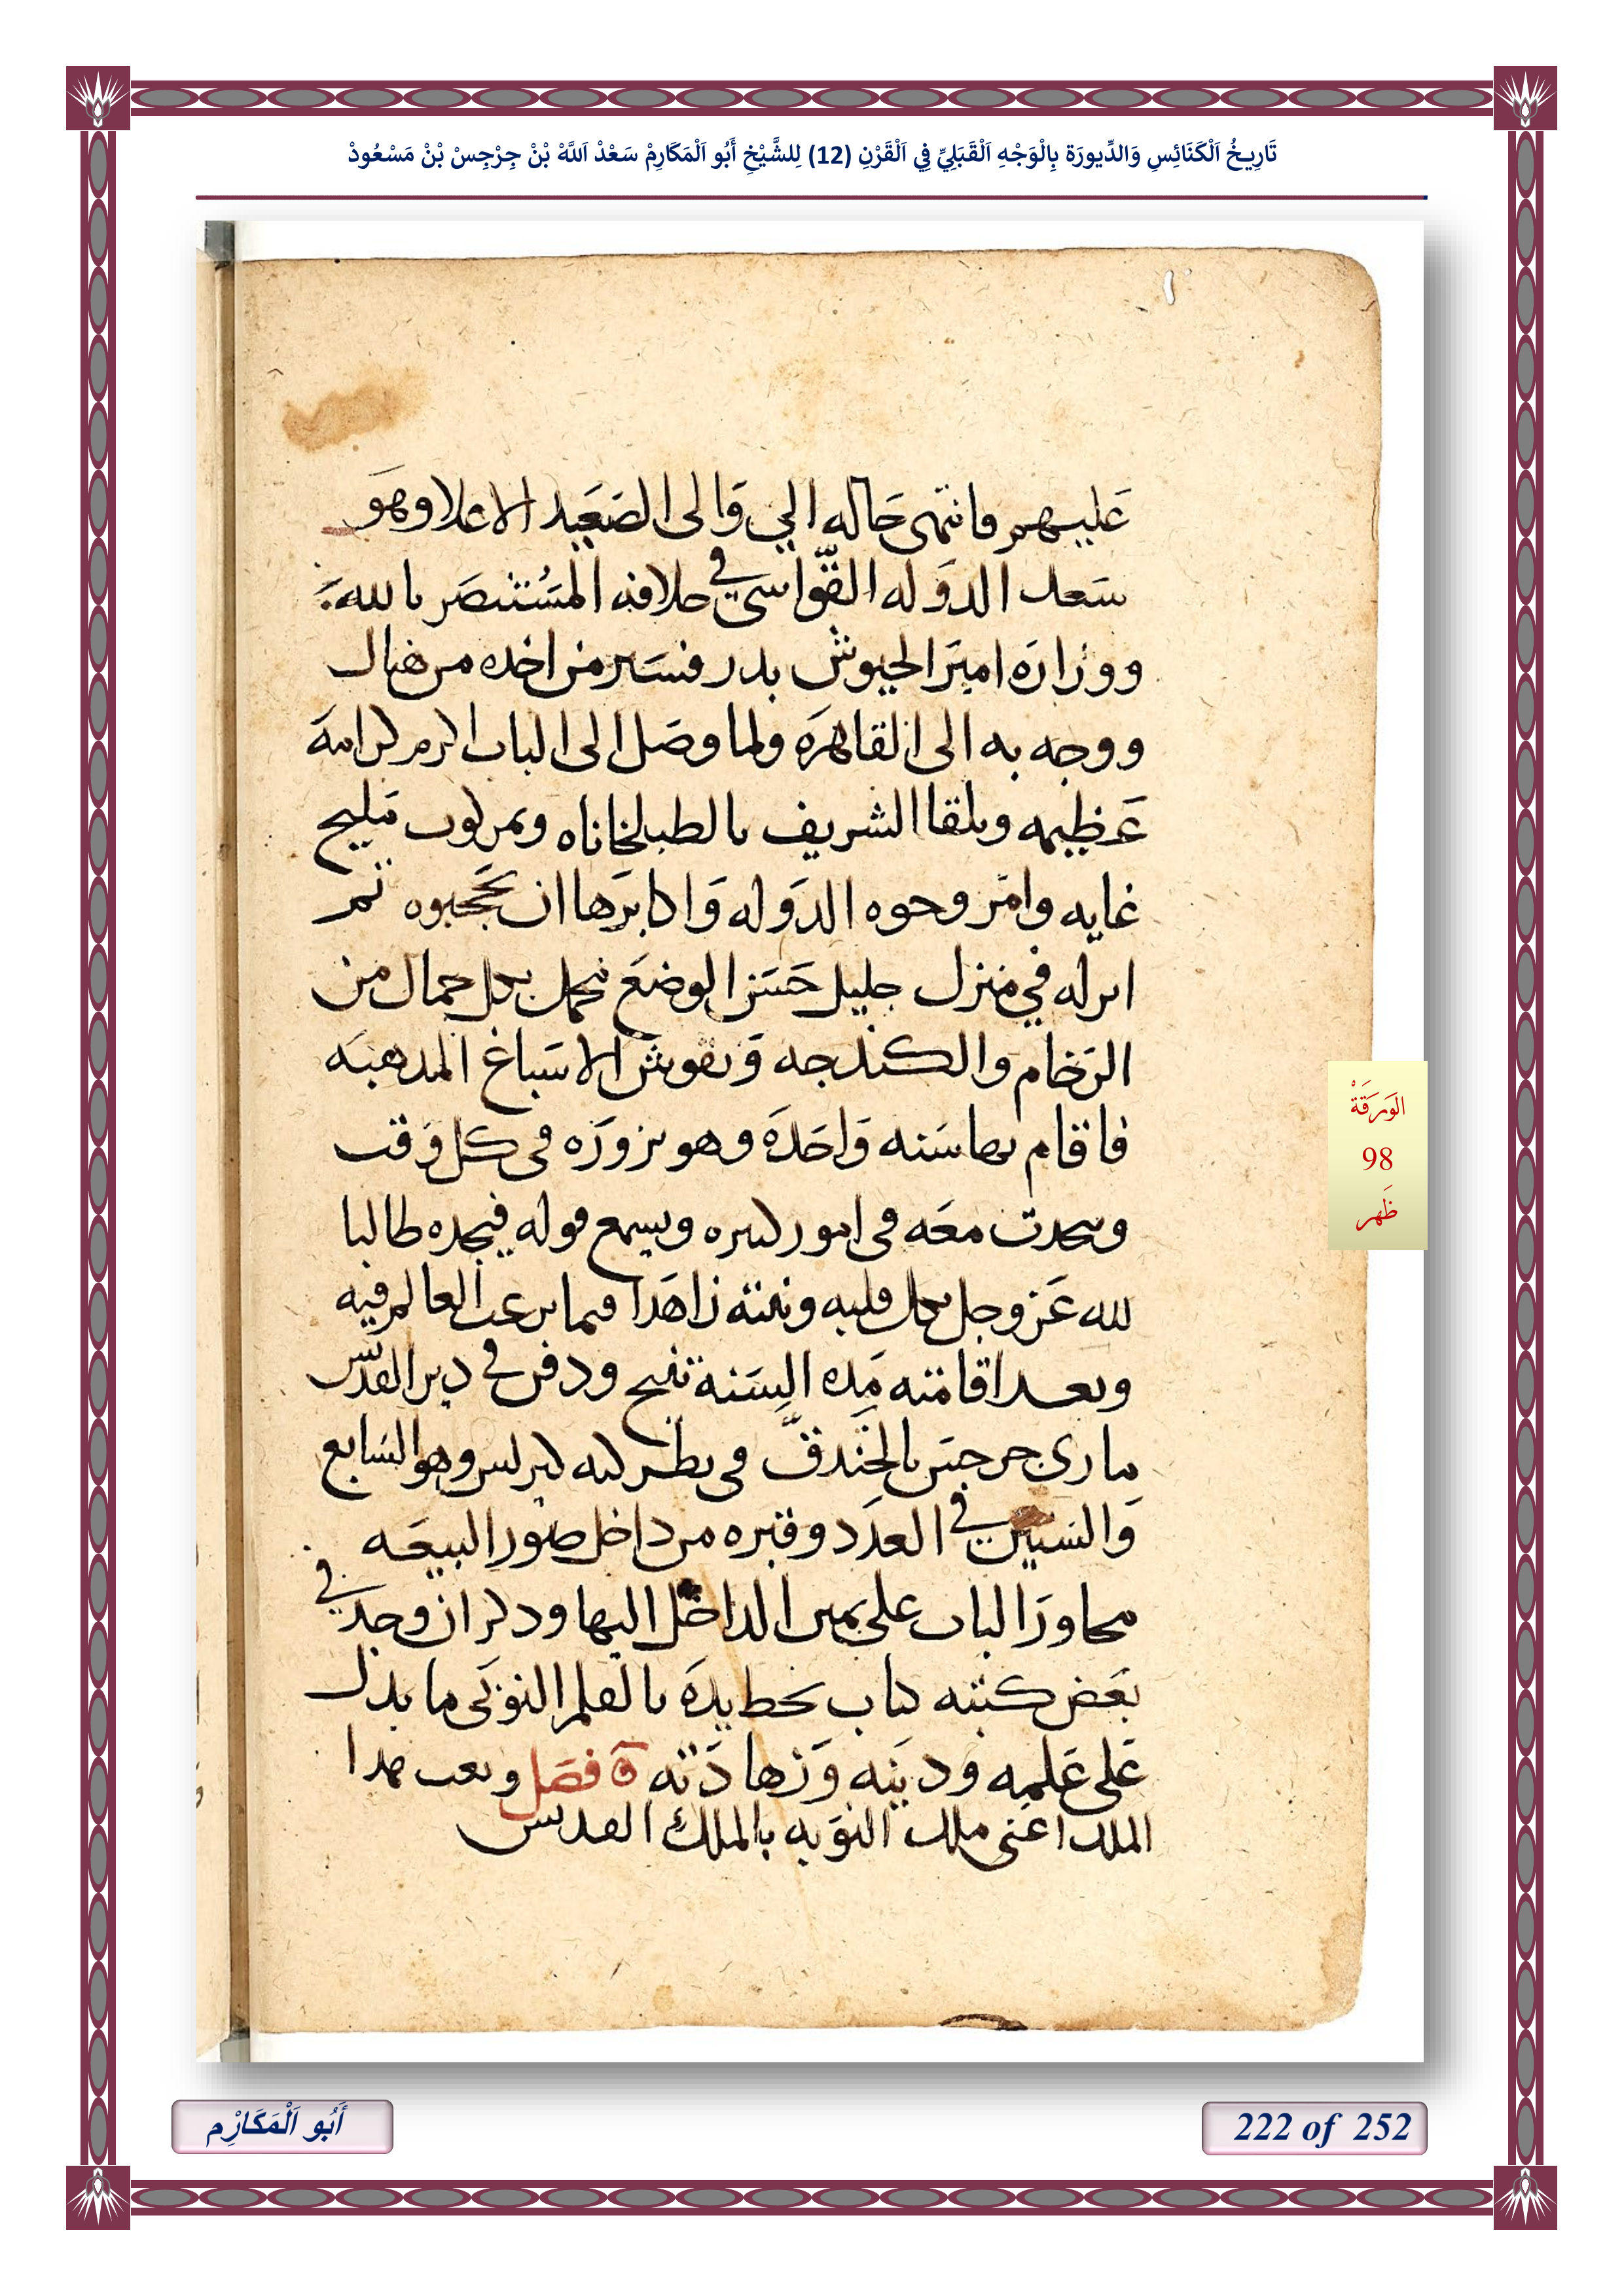 تَارِيخُ اَلْكَنَائِسِ وَالدِّيورَة بِالْوَجْهِ اَلْقَبَلِيِّ فِي اَلْقَرْنِ (12) لِلشَّيْخِ أَبُو اَلْمَكَارِمْ سَعْدْ اَللَّهْ بْنْ جِرْجِسْ بْنْ مَسْعُودْ
عَليهم فانتهى حَاله الي وَالى الصَعَيد الاعلا وهَو
سَعد الدَوله القوّاسي في خلافه المسُتنصَر بالله
ووزارَه اميَر الجيوش بدر فسَير من اخده من هناك
ووجه به الى القاهرَه ولما وصَل الى الباب اكرم كرامهَ
عَظيمه وتلقا الشريف بالطبلخاناه ومركوب مَليح
غايه وامَر وجوه الدَوله وَاكابرَها ان يحَجبوه ثم
انزله في منزل جليل حَسَن الوضعَ مجمل بكل جمال من
الرَخام والكندجه وَنقوش الاسَباغ المدهبَه
فاقام بها سَنه وَاحَدَه وهو يزورَه فى كل وَقت
ويتحدت معَه فى امور كثيره ويسمع قوله فيجده طالبا
لله عَز وجل بكل قلبه ونيته زاهَدا فيما يرغب العالم فيه
وبعد اقامته هَده السَنة تنيح ودفن في دير القدّيس
مارى جرجسَ بالخَندقّ فى بطركيه كيرلس وهو السَابع
وَالسَتين في العدَد وقبره من داخل صوُر البيعَه
مجاورَا لباب على يمين الداخل اليها ودكر ان وجدَ في
بعَض كتبه كتاب بخط يدَه بالقلم النوَبى ما يدل
عَلى عَلمه ودينه وَزهادَته ة فصَل ونعت هدا
الملك اعَنى ملك النوَبه بالملك القديس
الوَرَقَةْ
98
ظَهر
أَبُو اَلْمَكَارِْم
222 of 252